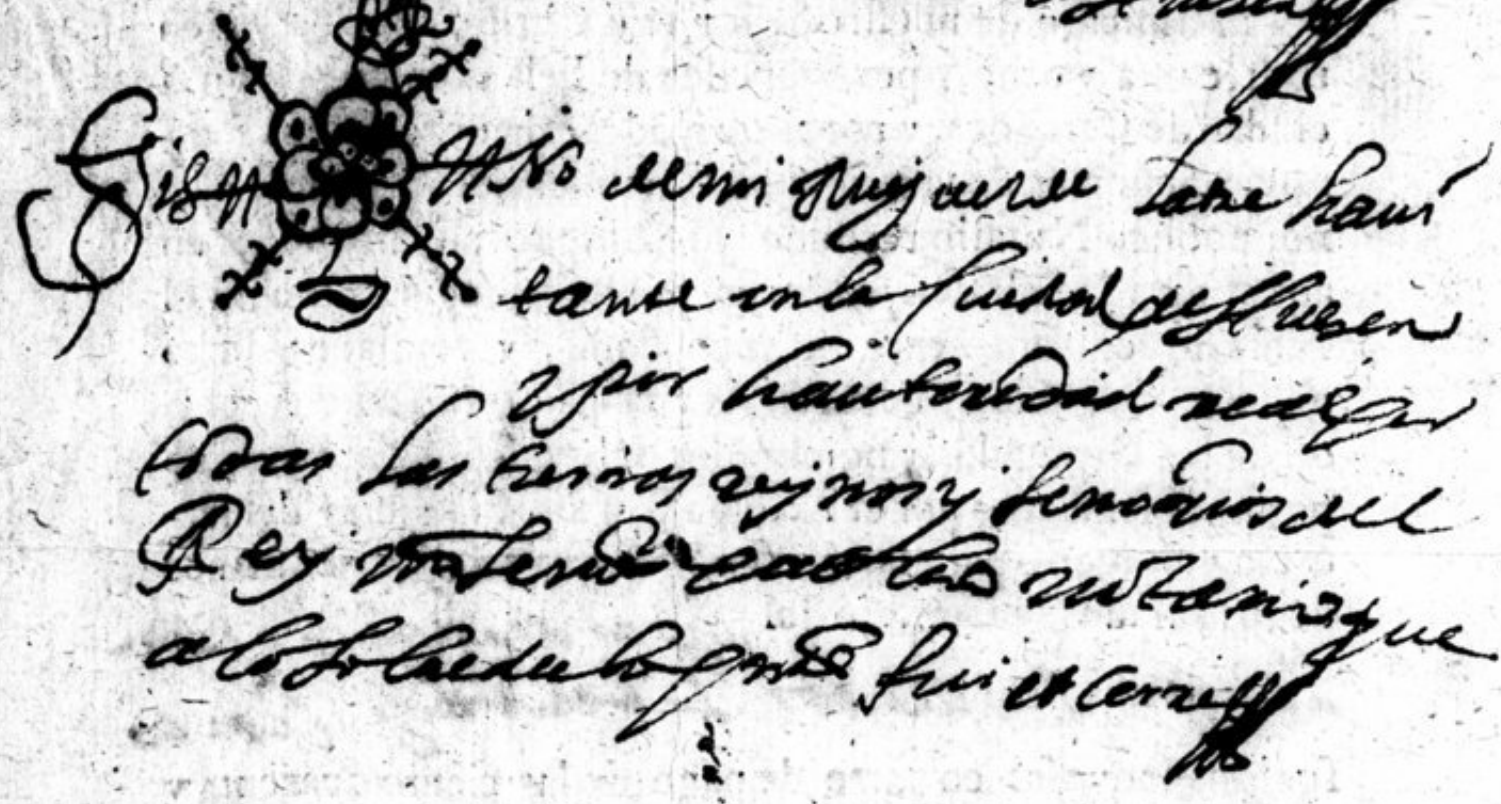 Sig no de mi Miguel de Latre havi
tante en la ciudad de Huesca
y por hautoridad real por
todas las tierras reynos y senorios del
Rey nro senor publico notario que
a lo sobredicho pnte fui et cerre